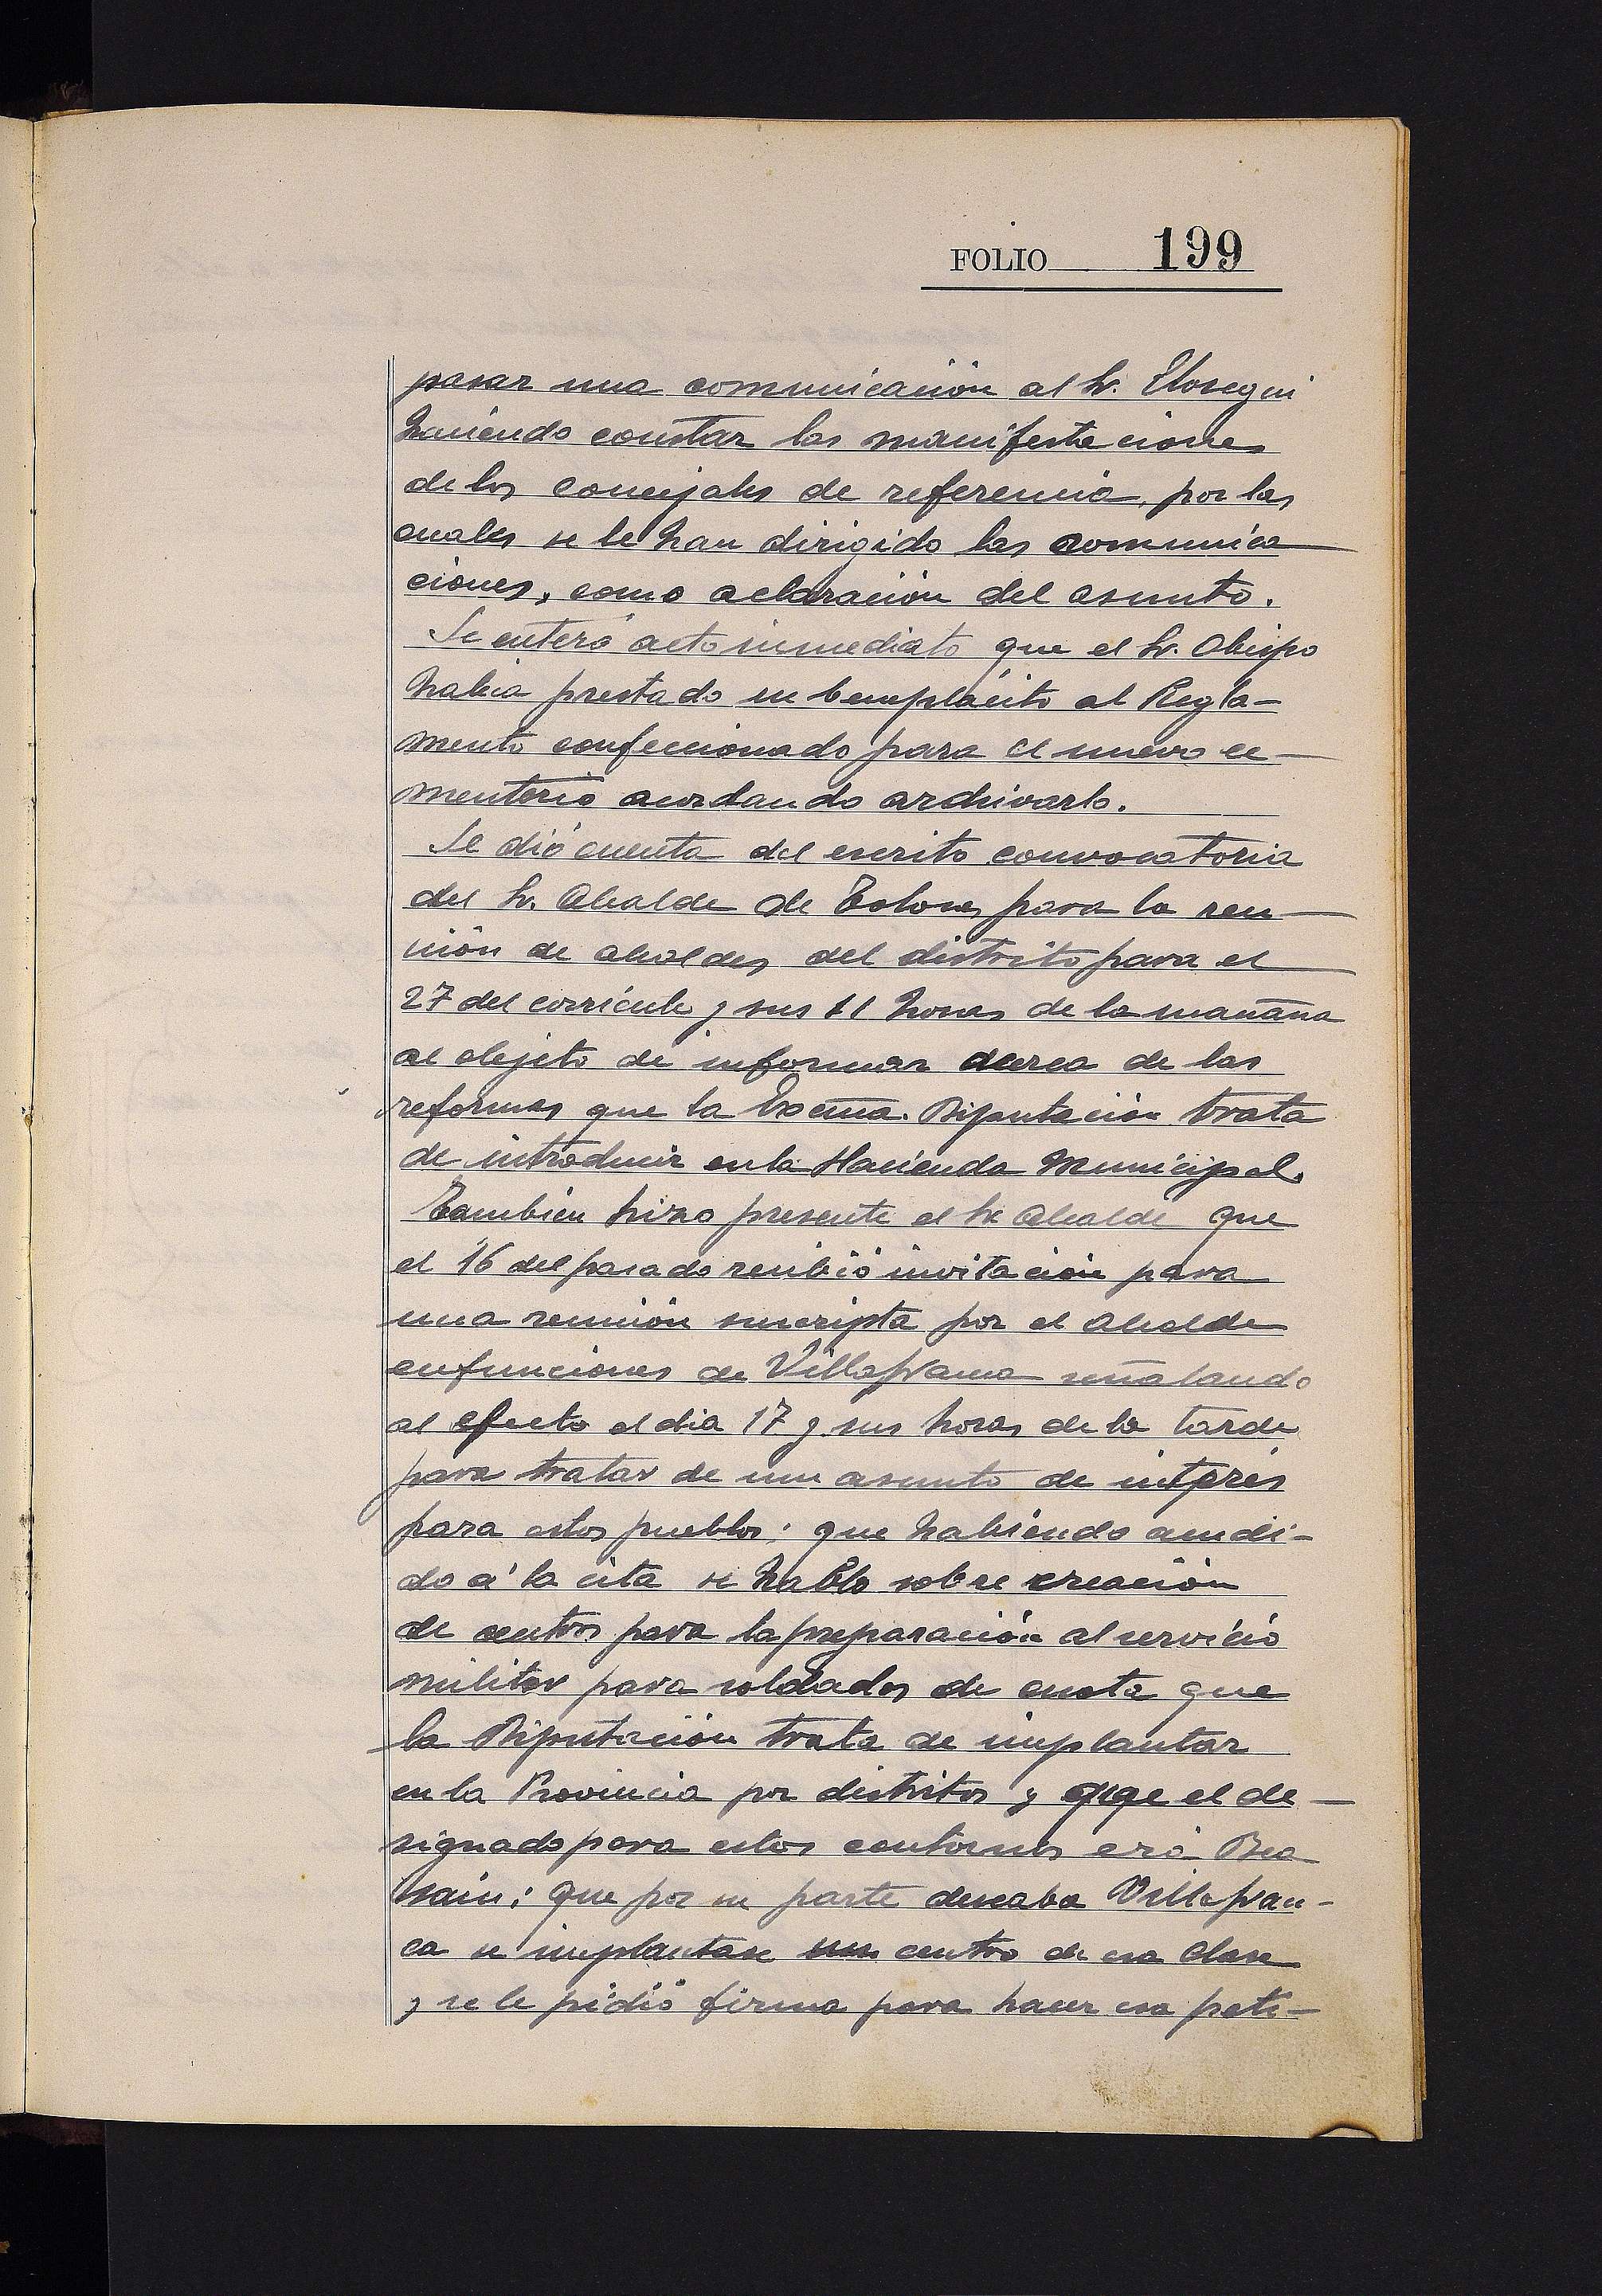 FOLIO 199
pasar una comunicación al Sr. Elosegui
haciendo constar las manifestaciones
de los concejales de referencia, por las
cuales se le han dirigido las comunica
ciones, como aclaración del asunto.
Se enteró acto inmediato que el Sr. Obispo
habia prestado su beneplácito al Regla-
mento confeccionado para el nuevo ce-
menterio acordando archivarlo.
Se dió cuenta del escrito convocatoria
del Sr. Alcalde de Tolosa, para la reu-
nión de alcaldes del distrito para el
27 del corriente y sus 11 horas de la mañana
al objeto de informar acerca de las
reformas que la Excma. Diputación trata
de introducir en la Hacienda Municipal.
Tambien hizo presente el Sr. Alcalde que
el 16 del pasado recibió invitación para
una reunión suscripta por el alcalde
en funciones de Villafranca señalando
al efecto el dia 17 y sus horas de la tarde
para tratar de un asunto de interés
para estos pueblos; que habiendo acudi-
do á la cita se habló sobre creación
de centros para la preparación al servicio
militar para soldados de cuota que
la Diputación trata de implantar
en la Provincia por distritos y que el de-
signado para estos contornos era Bea
sain; que por su parte deseaba Villafran-
ca se implantase un centro de esa clase
y se le pidió firma para hacer esa peti-